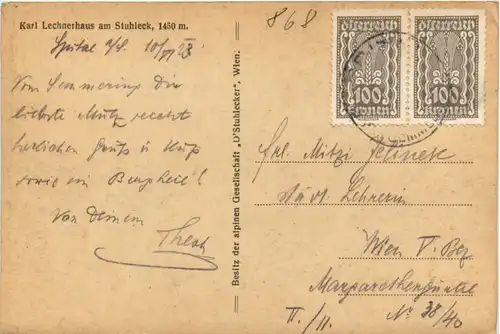 Karl Lechnerhaus am Stuhleck, 1450 m.
868
Spital a/S. 10/ 23
Vom Semmering Dir
liebste Mutz recht
herzlichen Gruß u Kuß
sowie ein Bergheil!
Von Deinem
Theo
Besitz der alpinen Gesellschaft „D'Stuhlecker", Wien.
österreich österreich
100 100
Kronen Kronen
Frl. Mitzi Jellinek
städt. Lehrerin
Wien V. Bez.
Margarethengürtel
II./11. No 38/40